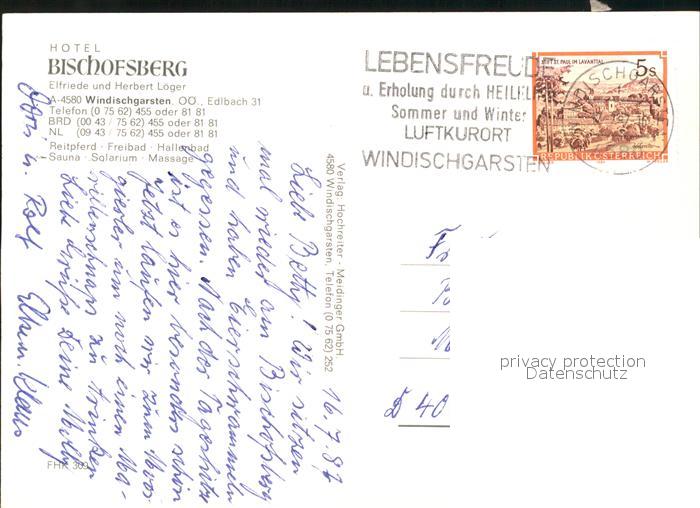 HOTEL
BISCHOFSBERG
Elfriede und Herbert Löger
A-4580 Windischgarsten, OÖ., Edlbach 31
Telefon (0 75 62) 455 oder 81 81
BRD (00 43 / 75 62) 455 oder 81 81
NL (09 43 / 75 62) 455 oder 81 81
Reitpferd · Freibad · Hallenbad
Sauna · Solarium · Massage
FHK
LEBENSFREUDE
u. Erholung durch
Sommer und Winter
LUFTKURORT
WINDISCHGARSTEN
STIFT ST. PAUL IM LAVANTTAL
5s
REPUBLIK ÖSTERREICH
Verlag: Hochreiter - Meidinger GmbH.
4580 Windischgarsten, Telefon (0 75 62) 252
16.7.87
Liebe Betty! Wir sitzen
mal wieder am Bischofsberg
und haben Eierschwammeln
gegessen. Nach der Tageshitze
ist es hier besonders schön
Jetzt laufen wir zum
um noch einen Ma-
zu trinken
Liebe Grüße Deine
Doris u. Rolf
Klaus
D 40
privacy protection
Datenschutz